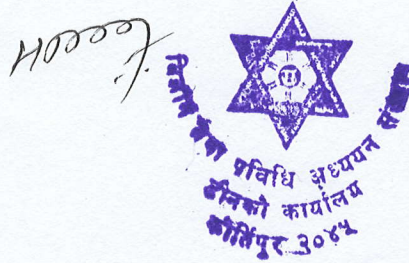 विज्ञान तथा प्रविधि अध्ययन संस्थान
डीनको कार्यालय
कीर्तिपुर २०४५